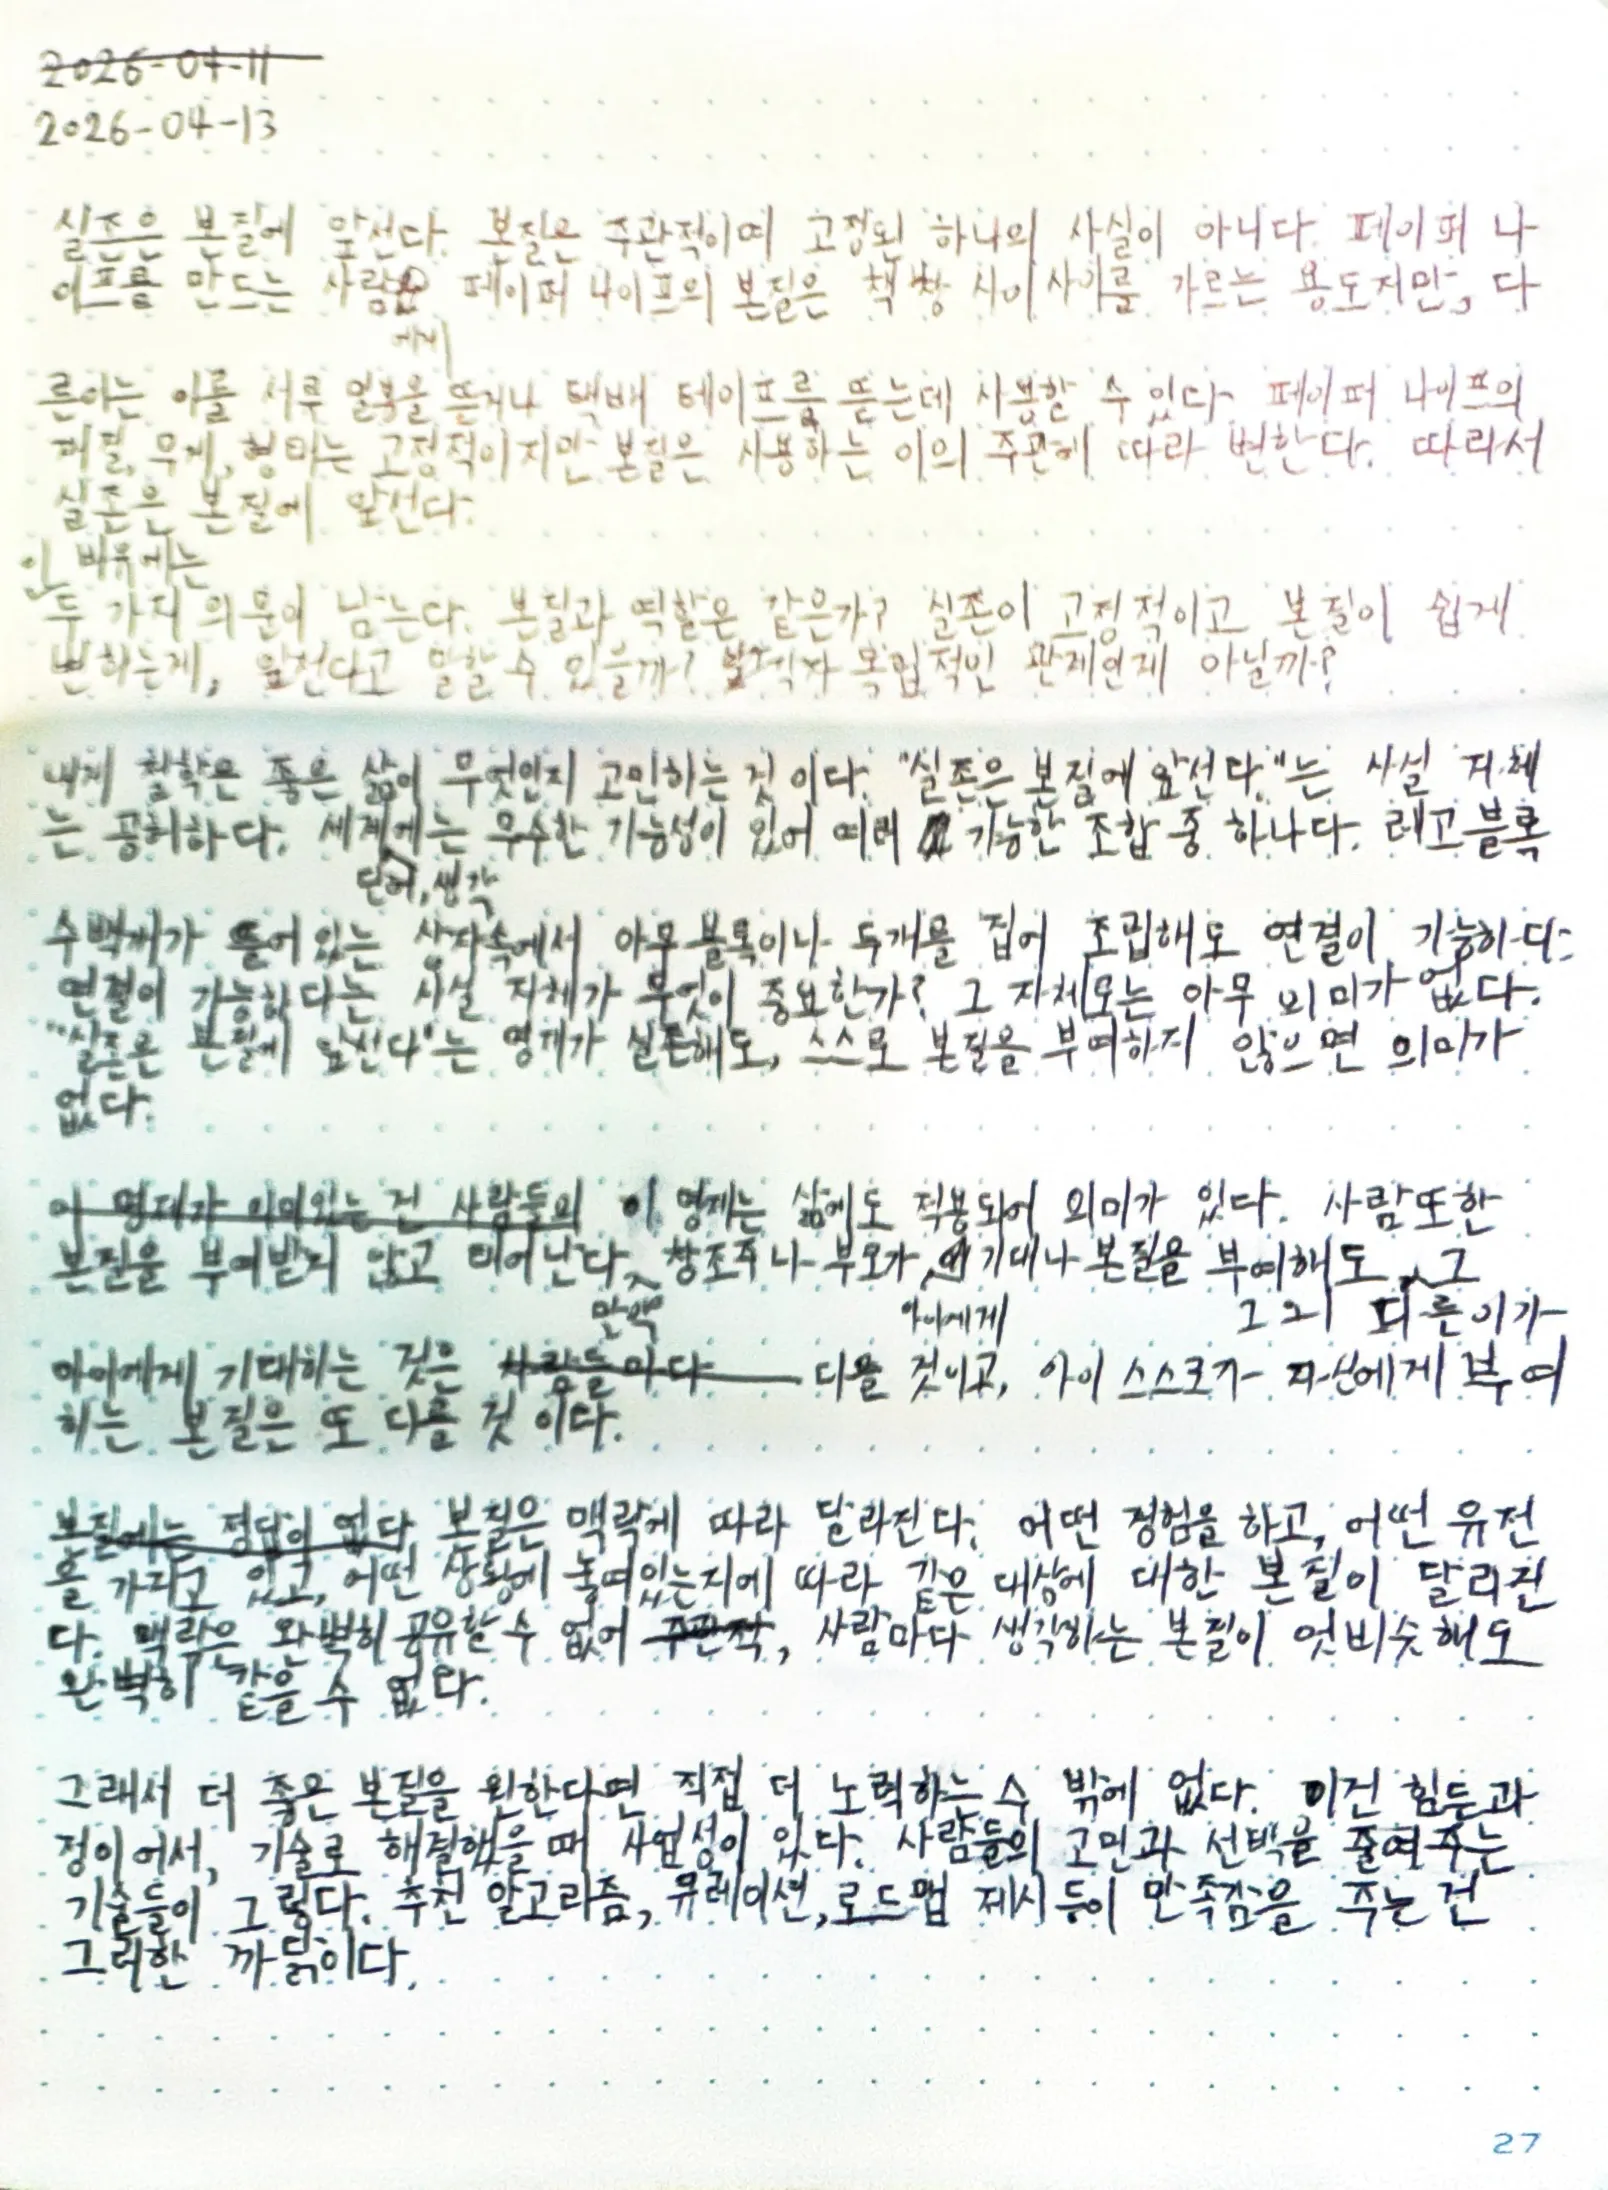 2026-04-11
2026-04-13
실존은 본질에 앞선다. 본질은 주관적이며 고정된 하나의 사실이 아니다. 페이퍼 나
이프를 만드는 사람 페이퍼 나이프의 본질은 책장 사이사이를 가르는 용도지만, 다
에게
른이는 이를 서류 을 뜯거나 택배 테이프를 뜯는데 사용할 수 있다. 페이퍼 나이프의
재질, 무게, 형태는 고정적이지만 본질은 사용하는 이의 주관에 따라 변한다. 따라서
실존은 본질에 앞선다.
인 비유에는
두 가지 의문이 남는다. 본질과 역할은 같은가? 실존이 고정적이고 본질이 쉽게
변하는게, 앞선다고 말할 수 있을까? 각자 독립적인 관계인게 아닐까?
내게 철학은 좋은 삶이 무엇인지 고민하는 것이다. "실존은 본질에 앞선다."는 사실 자체
는 공허하다. 세계에는 무수한 가능성이 있어 여러 가능한 조합 중 하나다. 레고 블록
단어, 생각
수백개가 들어있는 상자속에서 아무 블록이나 두개를 집어 조립해도 연결이 가능하다.
연결이 가능하다는 사실 자체가 무엇이 중요한가? 그 자체로는 아무 의미가 없다.
"실존은 본질에 앞선다"는 명제가 실존해도, 스스로 본질을 부여하지 않으면 의미가
없다.
이 명제가 의미있는 건 사람들의 이 명제는 삶에도 적용되어 의미가 있다. 사람또한
본질을 부여받지 않고 태어난다. 창조주나 부모가 기대나 본질을 부여해도, 그
만약 아이에게 그 외 다른이가
아이에게 기대하는 것은 사람들마다 다를 것이고, 아이 스스로가 자신에게 부여
하는 본질은 또 다를 것이다.
본질에는 정답이 없다 본질은 맥락에 따라 달라진다. 어떤 경험을 하고, 어떤 유전
을 가지고 있고, 어떤 상황에 놓여있는지에 따라 같은 대상에 대한 본질이 달라진
다. 맥락은 완벽히 공유할 수 없어 주관적, 사람마다 생각하는 본질이 엇비슷해도
완벽히 같을 수 없다.
그래서 더 좋은 본질을 원한다면 직접 더 노력하는 수 밖에 없다. 이건 힘든 과
정이어서, 기술로 해결했을 때 사업성이 있다. 사람들의 고민과 선택을 줄여주는
기술들이 그렇다. 추천 알고리즘, 큐레이션, 로드맵 제시 등이 만족감을 주는 건
그러한 까닭이다.
27